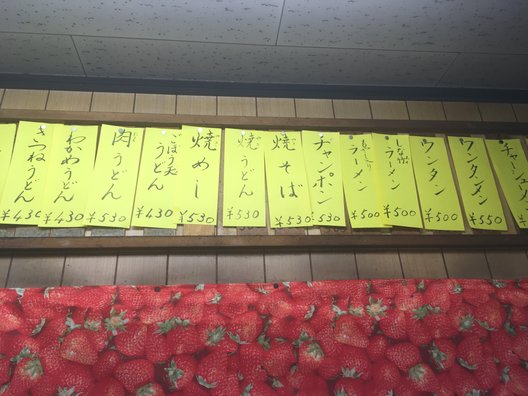 きつねうどん
¥430
わかめうどん
¥430
肉うどん
¥530
ごぼう天
うどん
¥430
焼めし
¥530
焼うどん
¥530
焼そば
¥530
チャンポン
¥530
ラーメン
¥500
しな竹
ラーメン
¥500
ウンタン
¥500
ワンタンメン
¥550
チャーシューメン